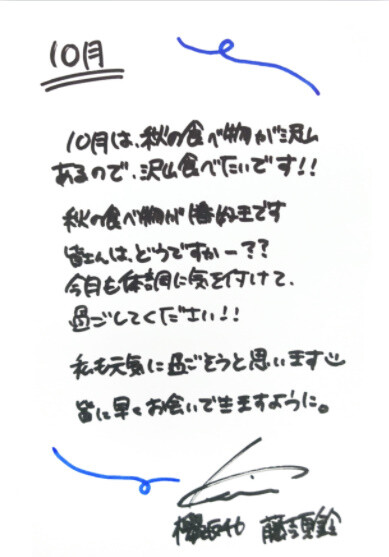 10月
10月は、秋の食べ物が沢山
あるので、沢山食べたいです!!
秋の食べ物が1番好きです
皆さんは、どうですかー??
今月も体調に気を付けて、
過ごしてください!!
私も元気に過ごそうと思います
皆に早くお会いできますように。
藤吉夏鈴